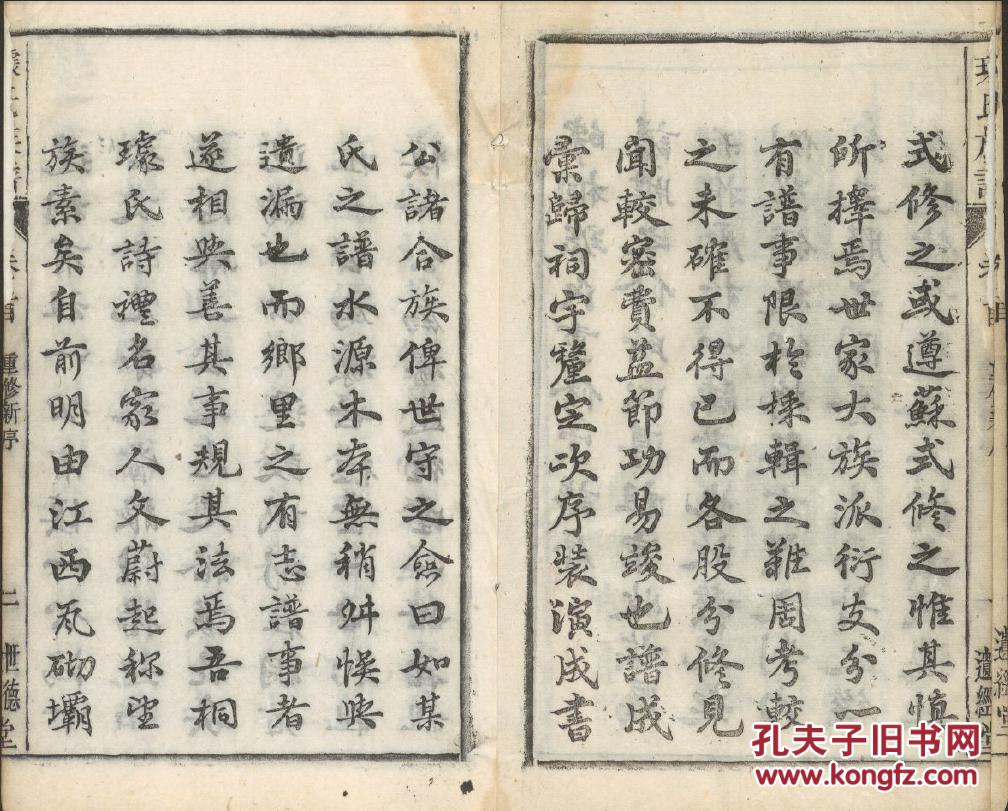 式修之或遵蘇式修之惟其慎
所擇焉世家大族派衍支分一
有譜事限於採輯之難周考較
之未確不得已而各股分修見
聞較密費益節功易竣也譜成
彙歸祠宇釐定次序裝演成書
公諸合族俾世守之僉曰如某
氏之譜水源木本無稍舛悞與
遺漏也而鄉里之有志譜事者
遂相與善其事規其法焉吾桐
璩氏詩禮名家人文蔚起称望
族素矣自前明由江西瓦砌壩
重修新序
二
世德堂
遺經堂
孔夫子旧书网
www.kongfz.com